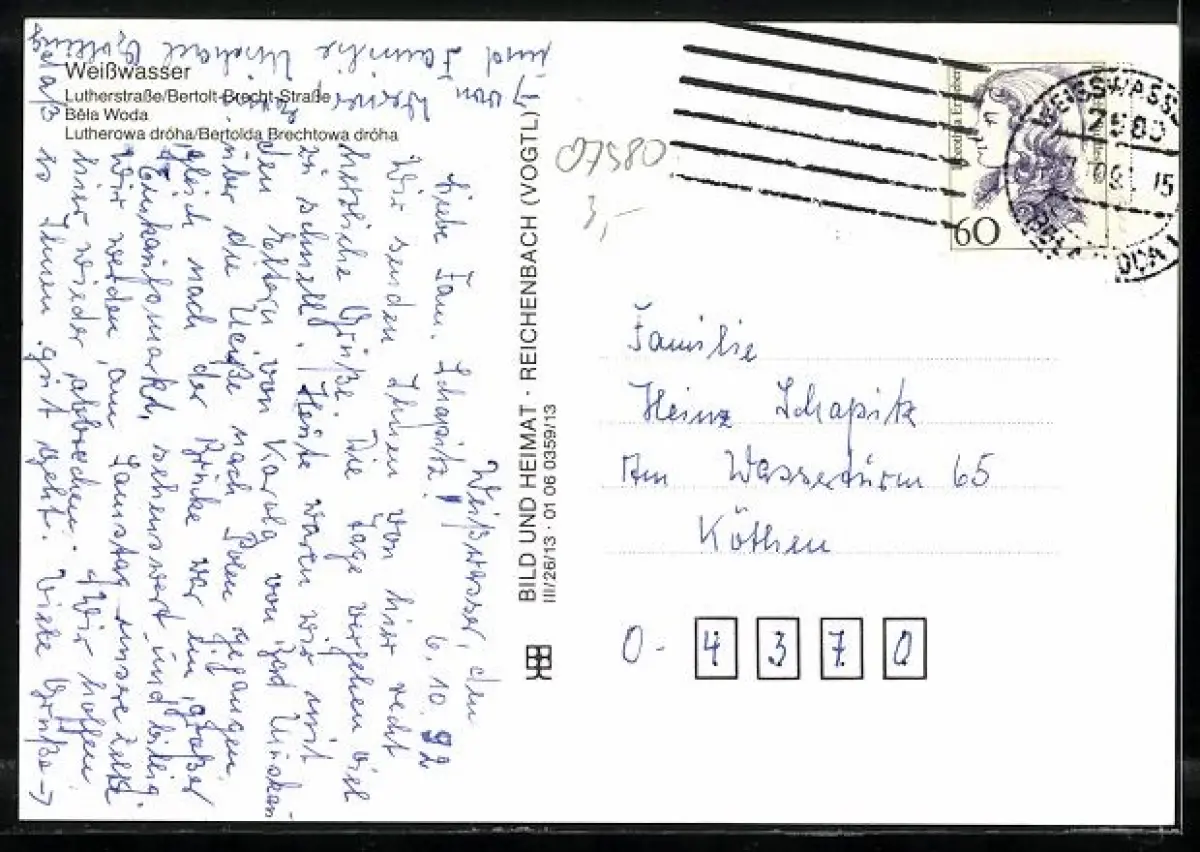 Weißwasser
Lutherstraße/Bertolt-Brecht-Straße
Běla Woda
Lutherowa dróha/Bertolda Brechtowa dróha
Weißwasser, den
6.10.92
Liebe Fam. Schapitz!
Wir senden Ihnen von hier recht
herzliche Grüße. Die Tage vergehen viel
zu schnell. Heute waren wir mit
den Eltern von Karola von Bad Muskau
über die Neiße nach Polen gegangen.
Gleich nach der Brücke war ein großer
Einkaufsmarkt, sehenswert und billig.
Wir werden am Samstag unsere Zelte
hier wieder abbrechen. Wir hoffen,
daß es Ihnen gut geht. Viele Grüße →
→ von Werner
und Familie Michael
BILD UND HEIMAT · REICHENBACH (VOGTL)
III/26/13 · 01 06 0359/13
07580
3,-
60
WEISSWASSER
7580
15
BĚŁA WODA
Familie
Heinz Schapitz
Am Wasserturm 65
Köthen
O - 4 3 7 0